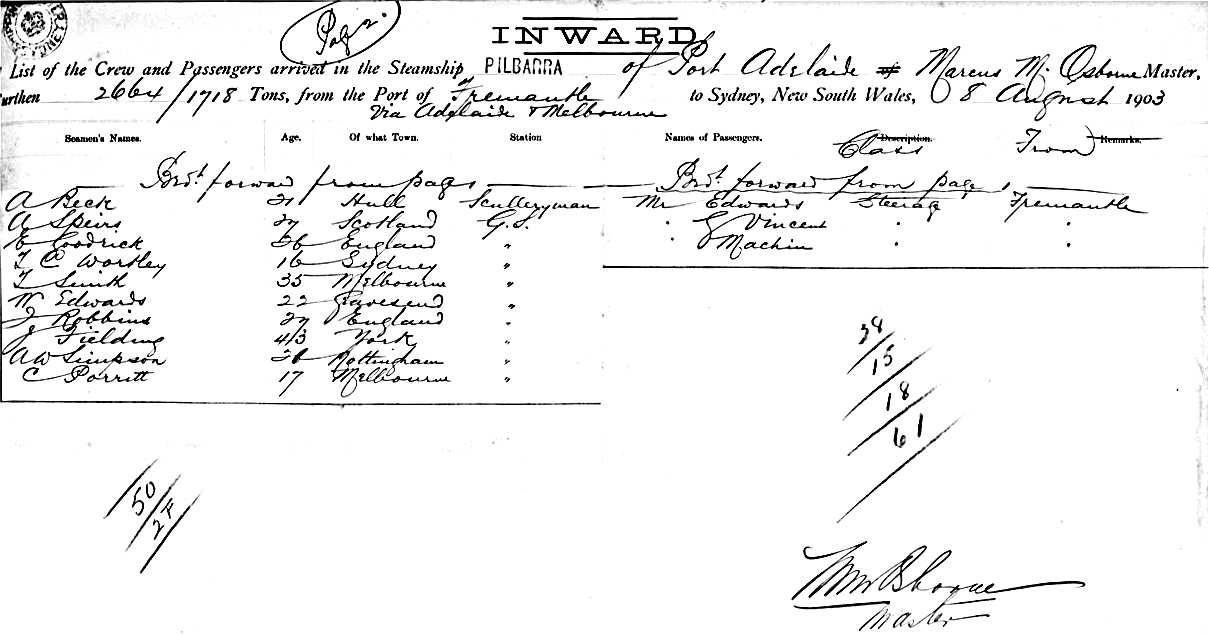 Page 2.
INWARD
List of the Crew and Passengers arrived in the Steamship PILBARRA of Port Adelaide Marcus M. Osborne Master,
urthen 2664/1718 Tons, from the Port of Fremantle to Sydney, New South Wales, 8 August 1903
Via Adelaide & Melbourne
Seamen's Names. Age. Of what Town. Station Names of Passengers. Description. Class From Remarks.
Brdt forward from page 1 Brdt forward from page 1
A Beck 21 Hull Sculleryman Mr Edwards Steerage Fremantle
A Speirs 27 Scotland G.S. " Vincent " "
E Goodrick 26 England " " Machin " "
F C Wortley 16 Sydney "
F Smith 35 Melbourne "
W Edwards 22 Gravesend "
J Robbins 27 England "
J Fielding 43 York "
A W Simpson Nottingham "
C Porritt 17 Melbourne "
28
15
18
61
50
2F
M M Osborne
Master